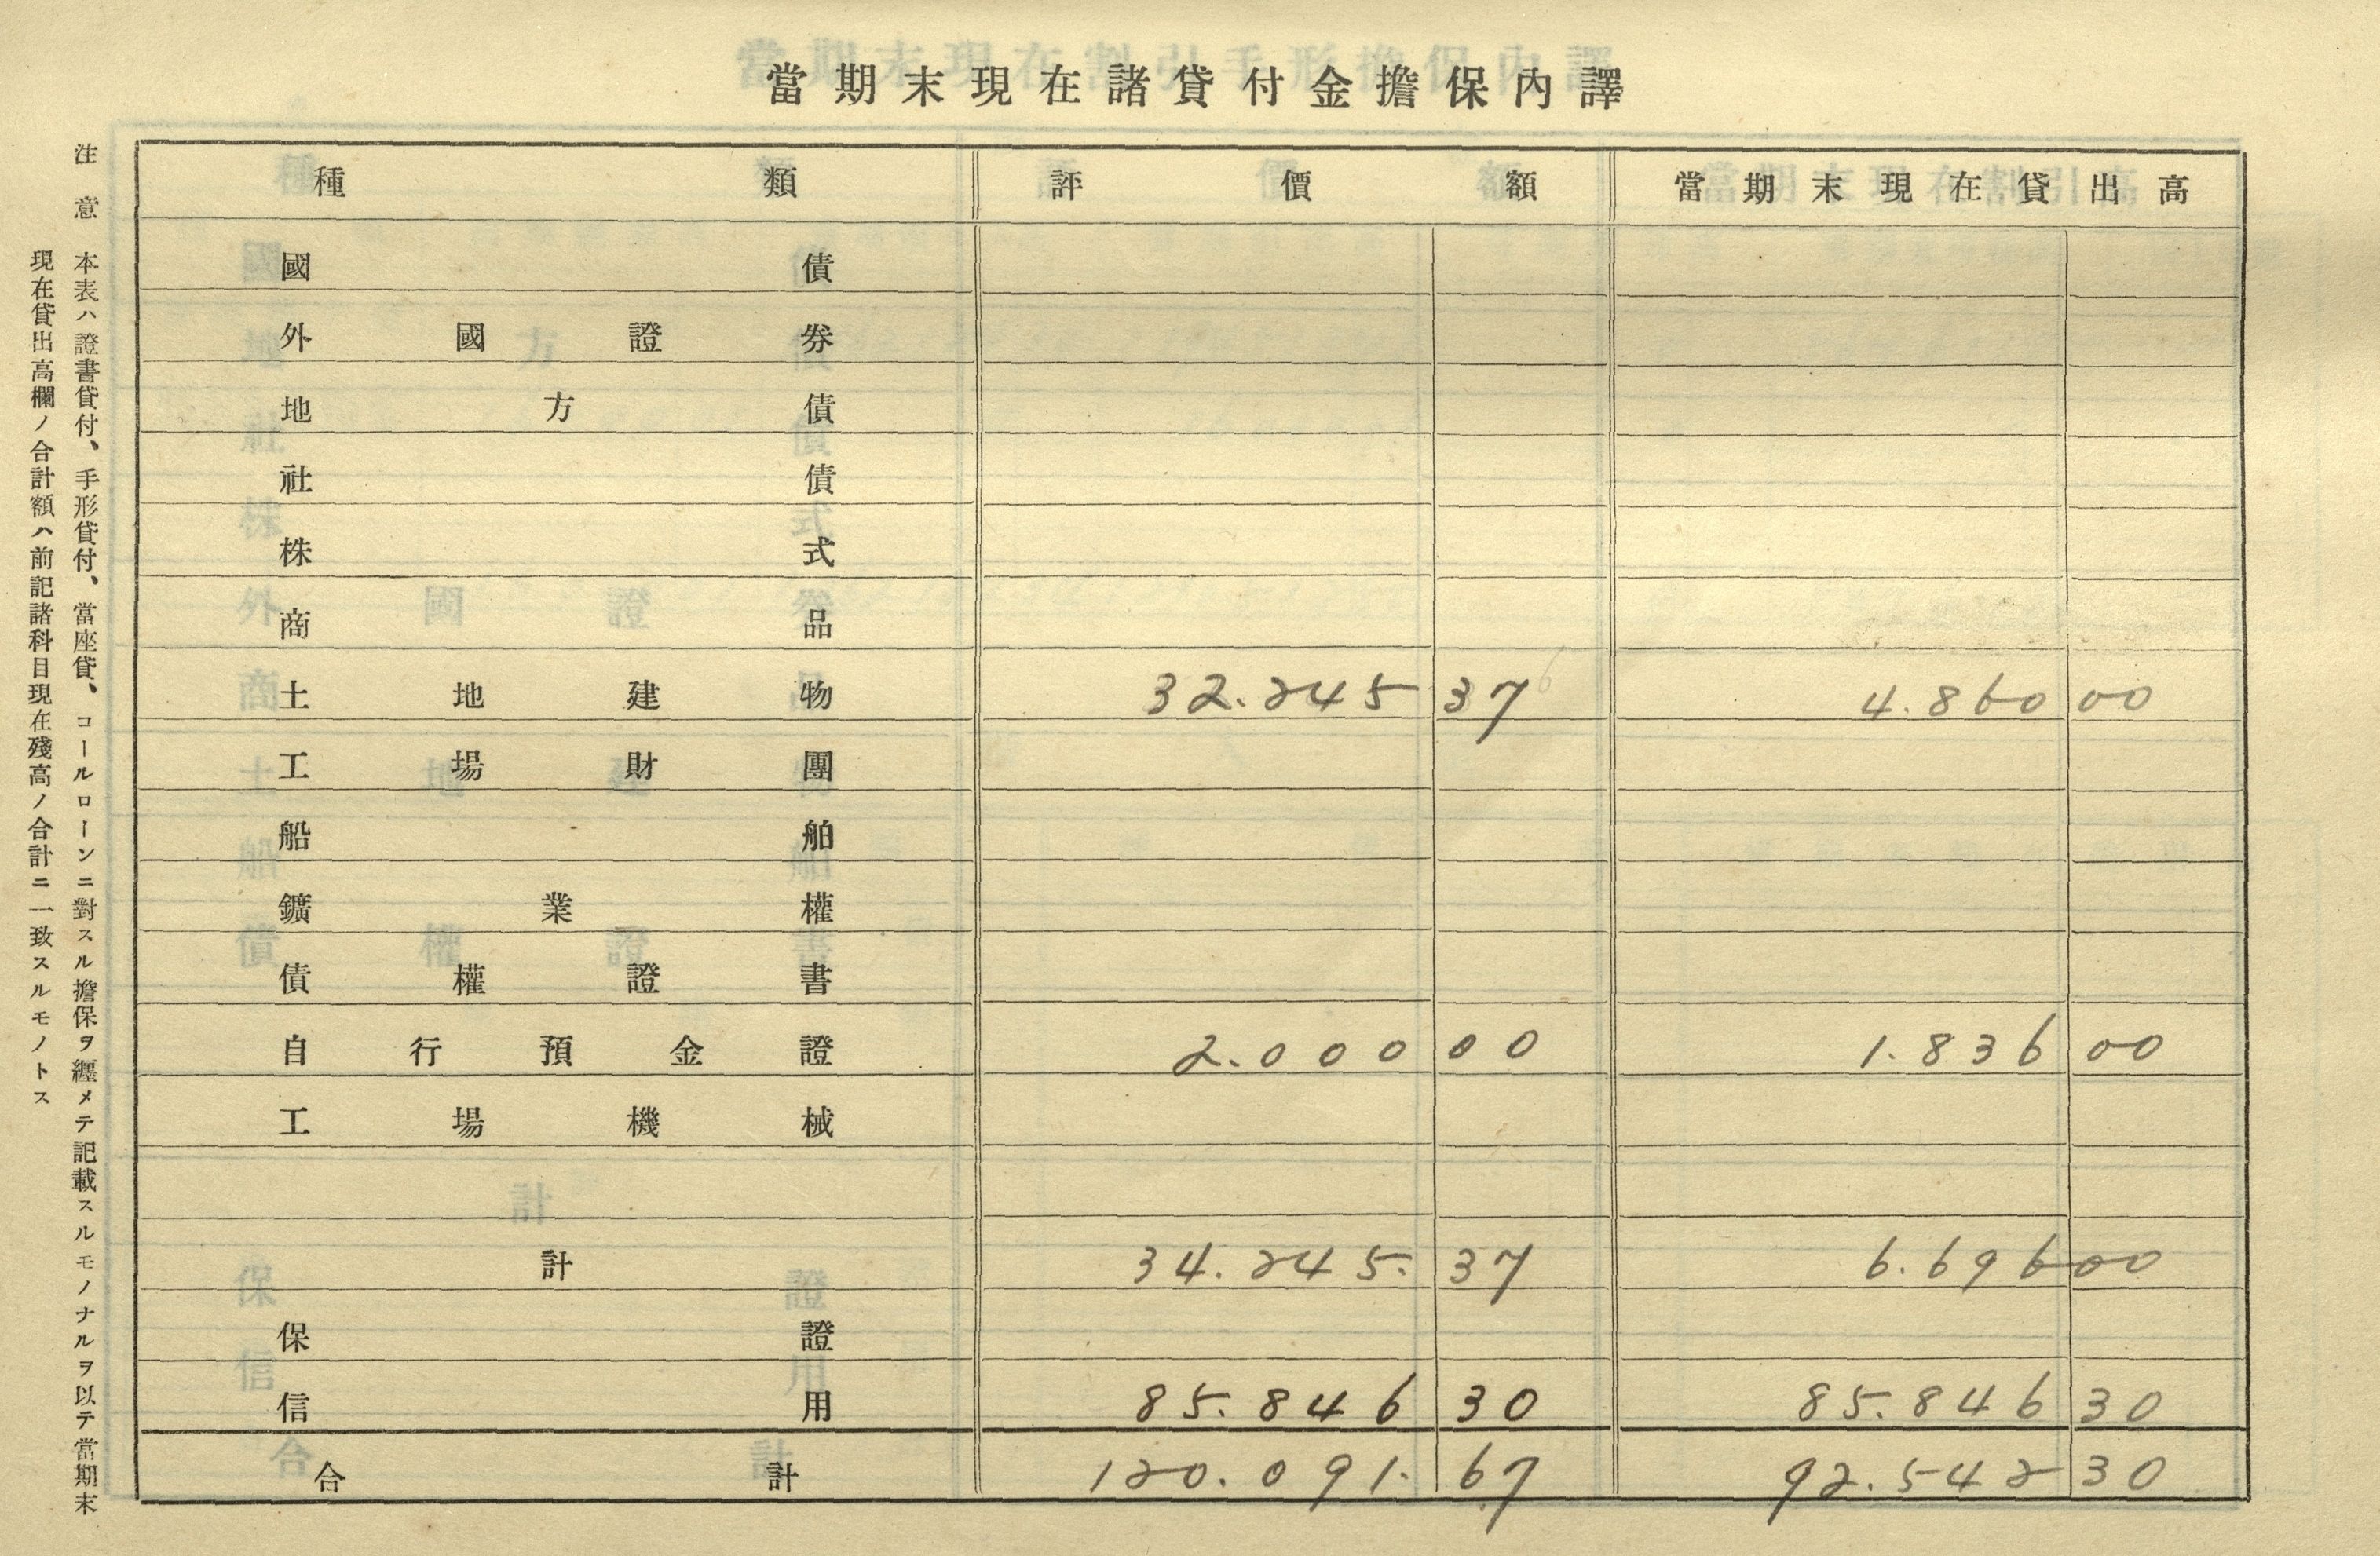 當期末現在諸貸付金擔保內譯
種類 評價額 當期末現在貸出高
國債
外國證券
地方債
社債
株式
商品
土地建物 32.245 37 4.860 00
工場財團
船舶
鑛業權
債權證書
自行預金證 2.000 00 1.836 00
工場機械
計 34.245. 37 6.696 00
保證
信用 85.846 30 85.846 30
合計 120.091. 67 92.542 30
注意 本表ハ證書貸付、手形貸付、當座貸、コールローンニ對スル擔保ヲ纒メテ記載スルモノナルヲ以テ當期末
現在貸出高欄ノ合計額ハ前記諸科目現在殘高ノ合計ニ一致スルモノトス